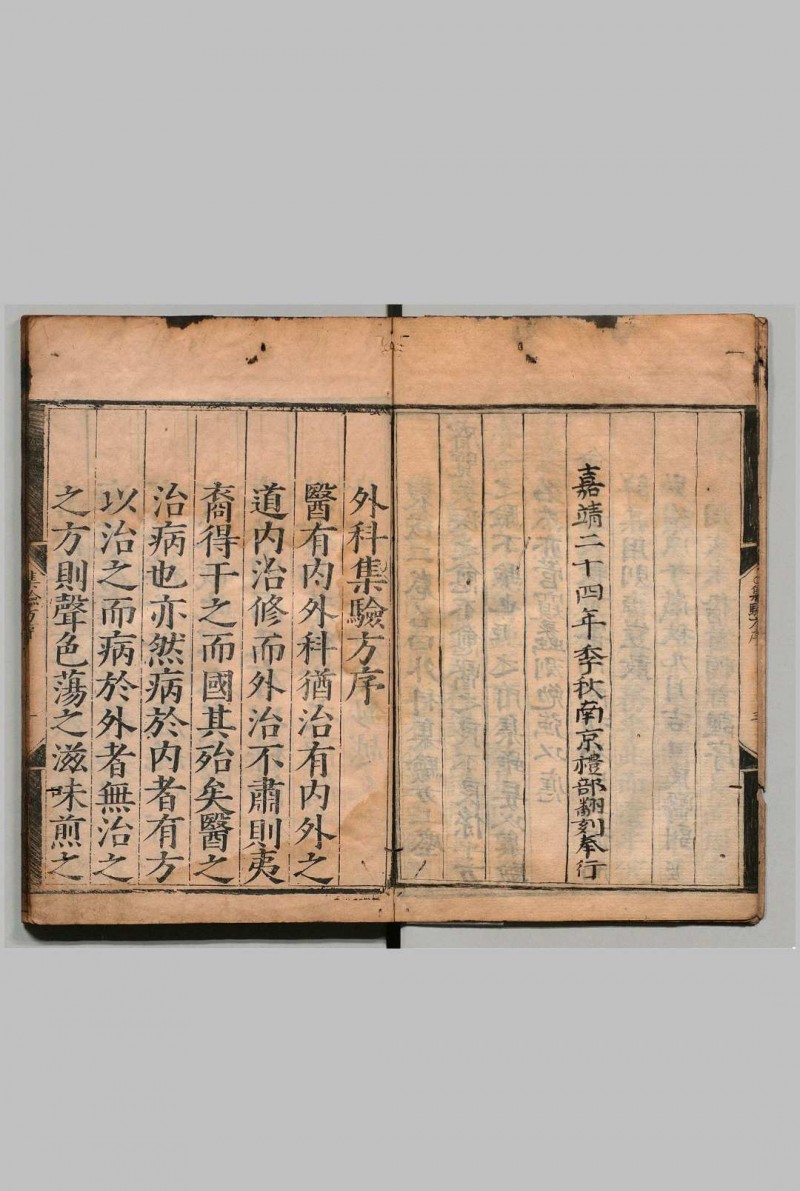 嘉靖二十四年季秋南京禮部翻刻奉行
外科集驗方序
醫有內外科猶治有內外之
道內治修而外治不肅則夷
裔得干之而國其殆矣醫之
治病也亦然病於內者有方
以治之而病於外者無治之
之方則聲色蕩之滋味煎之